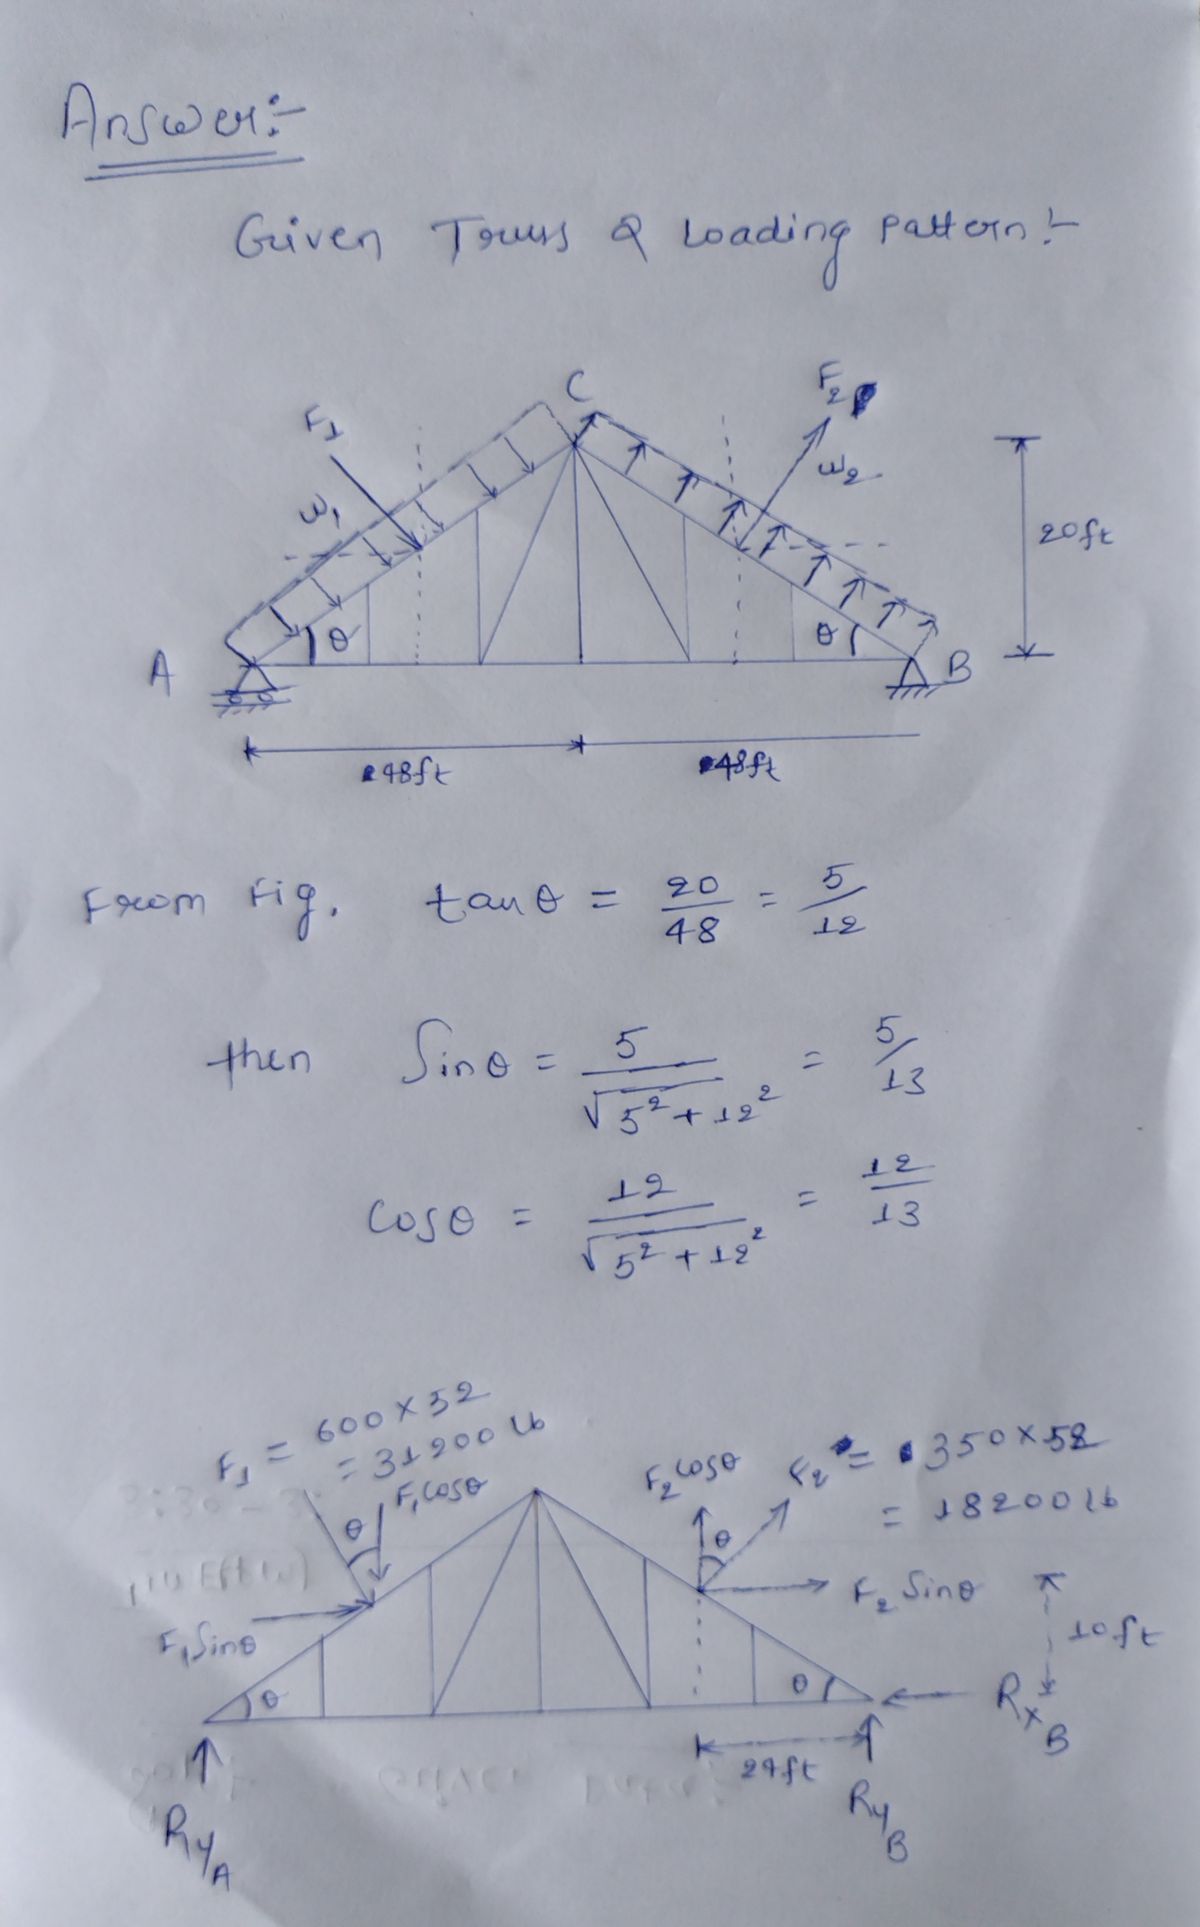 Answer:-
Given Truss & Loading Pattern:-
C
F1
F2
w1
w2
20ft
A
θ
θ
B
48ft
48ft
From Fig. tanθ = 20/48 = 5/12
then Sinθ = 5/√5²+12² = 5/13
Cosθ = 12/√5²+12² = 12/13
F1 = 600×52
= 31200 lb
F2 = 350×52
= 18200 lb
F1Cosθ
F2Cosθ
θ
θ
F1Sinθ
F2Sinθ
10ft
θ
θ
RxB
24ft
RyA
RyB